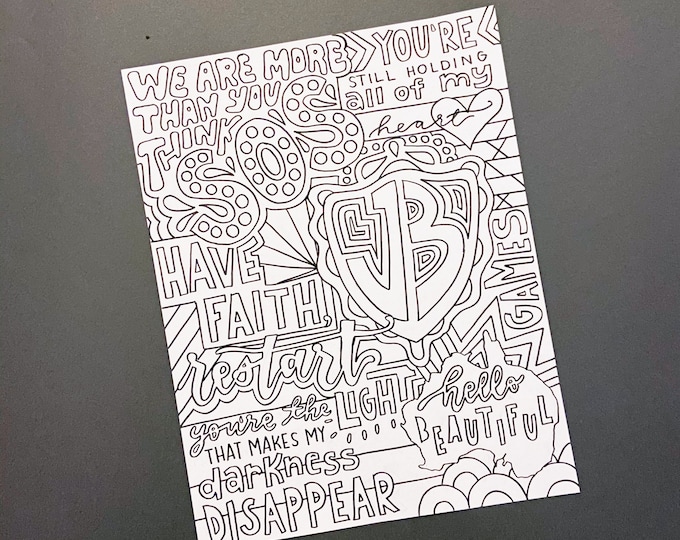 WE ARE MORE
THAN YOU
THINK
YOU'RE
STILL HOLDING
all of my
heart
SOS
JB
HAVE
FAITH,
restart
GAMES
you're the
LIGHT
THAT MAKES MY
darkness
DISAPPEAR
hello
BEAUTIFUL